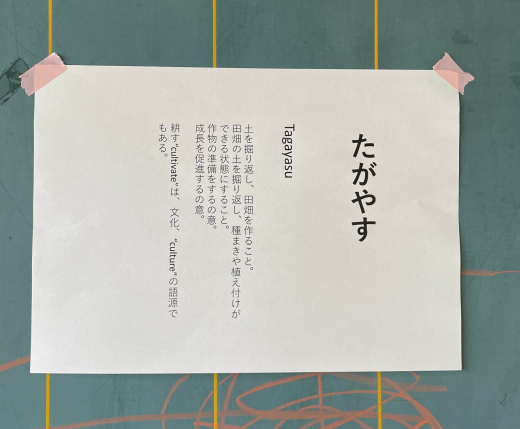 たがやす
Tagayasu
土を掘り返し、田畑を作ること。
田畑の土を掘り返し、種まきや植え付けが
できる状態にすること。
作物の準備をするの意。
成長を促進するの意。
耕す“cultivate”は、文化、“culture”の語源で
もある。